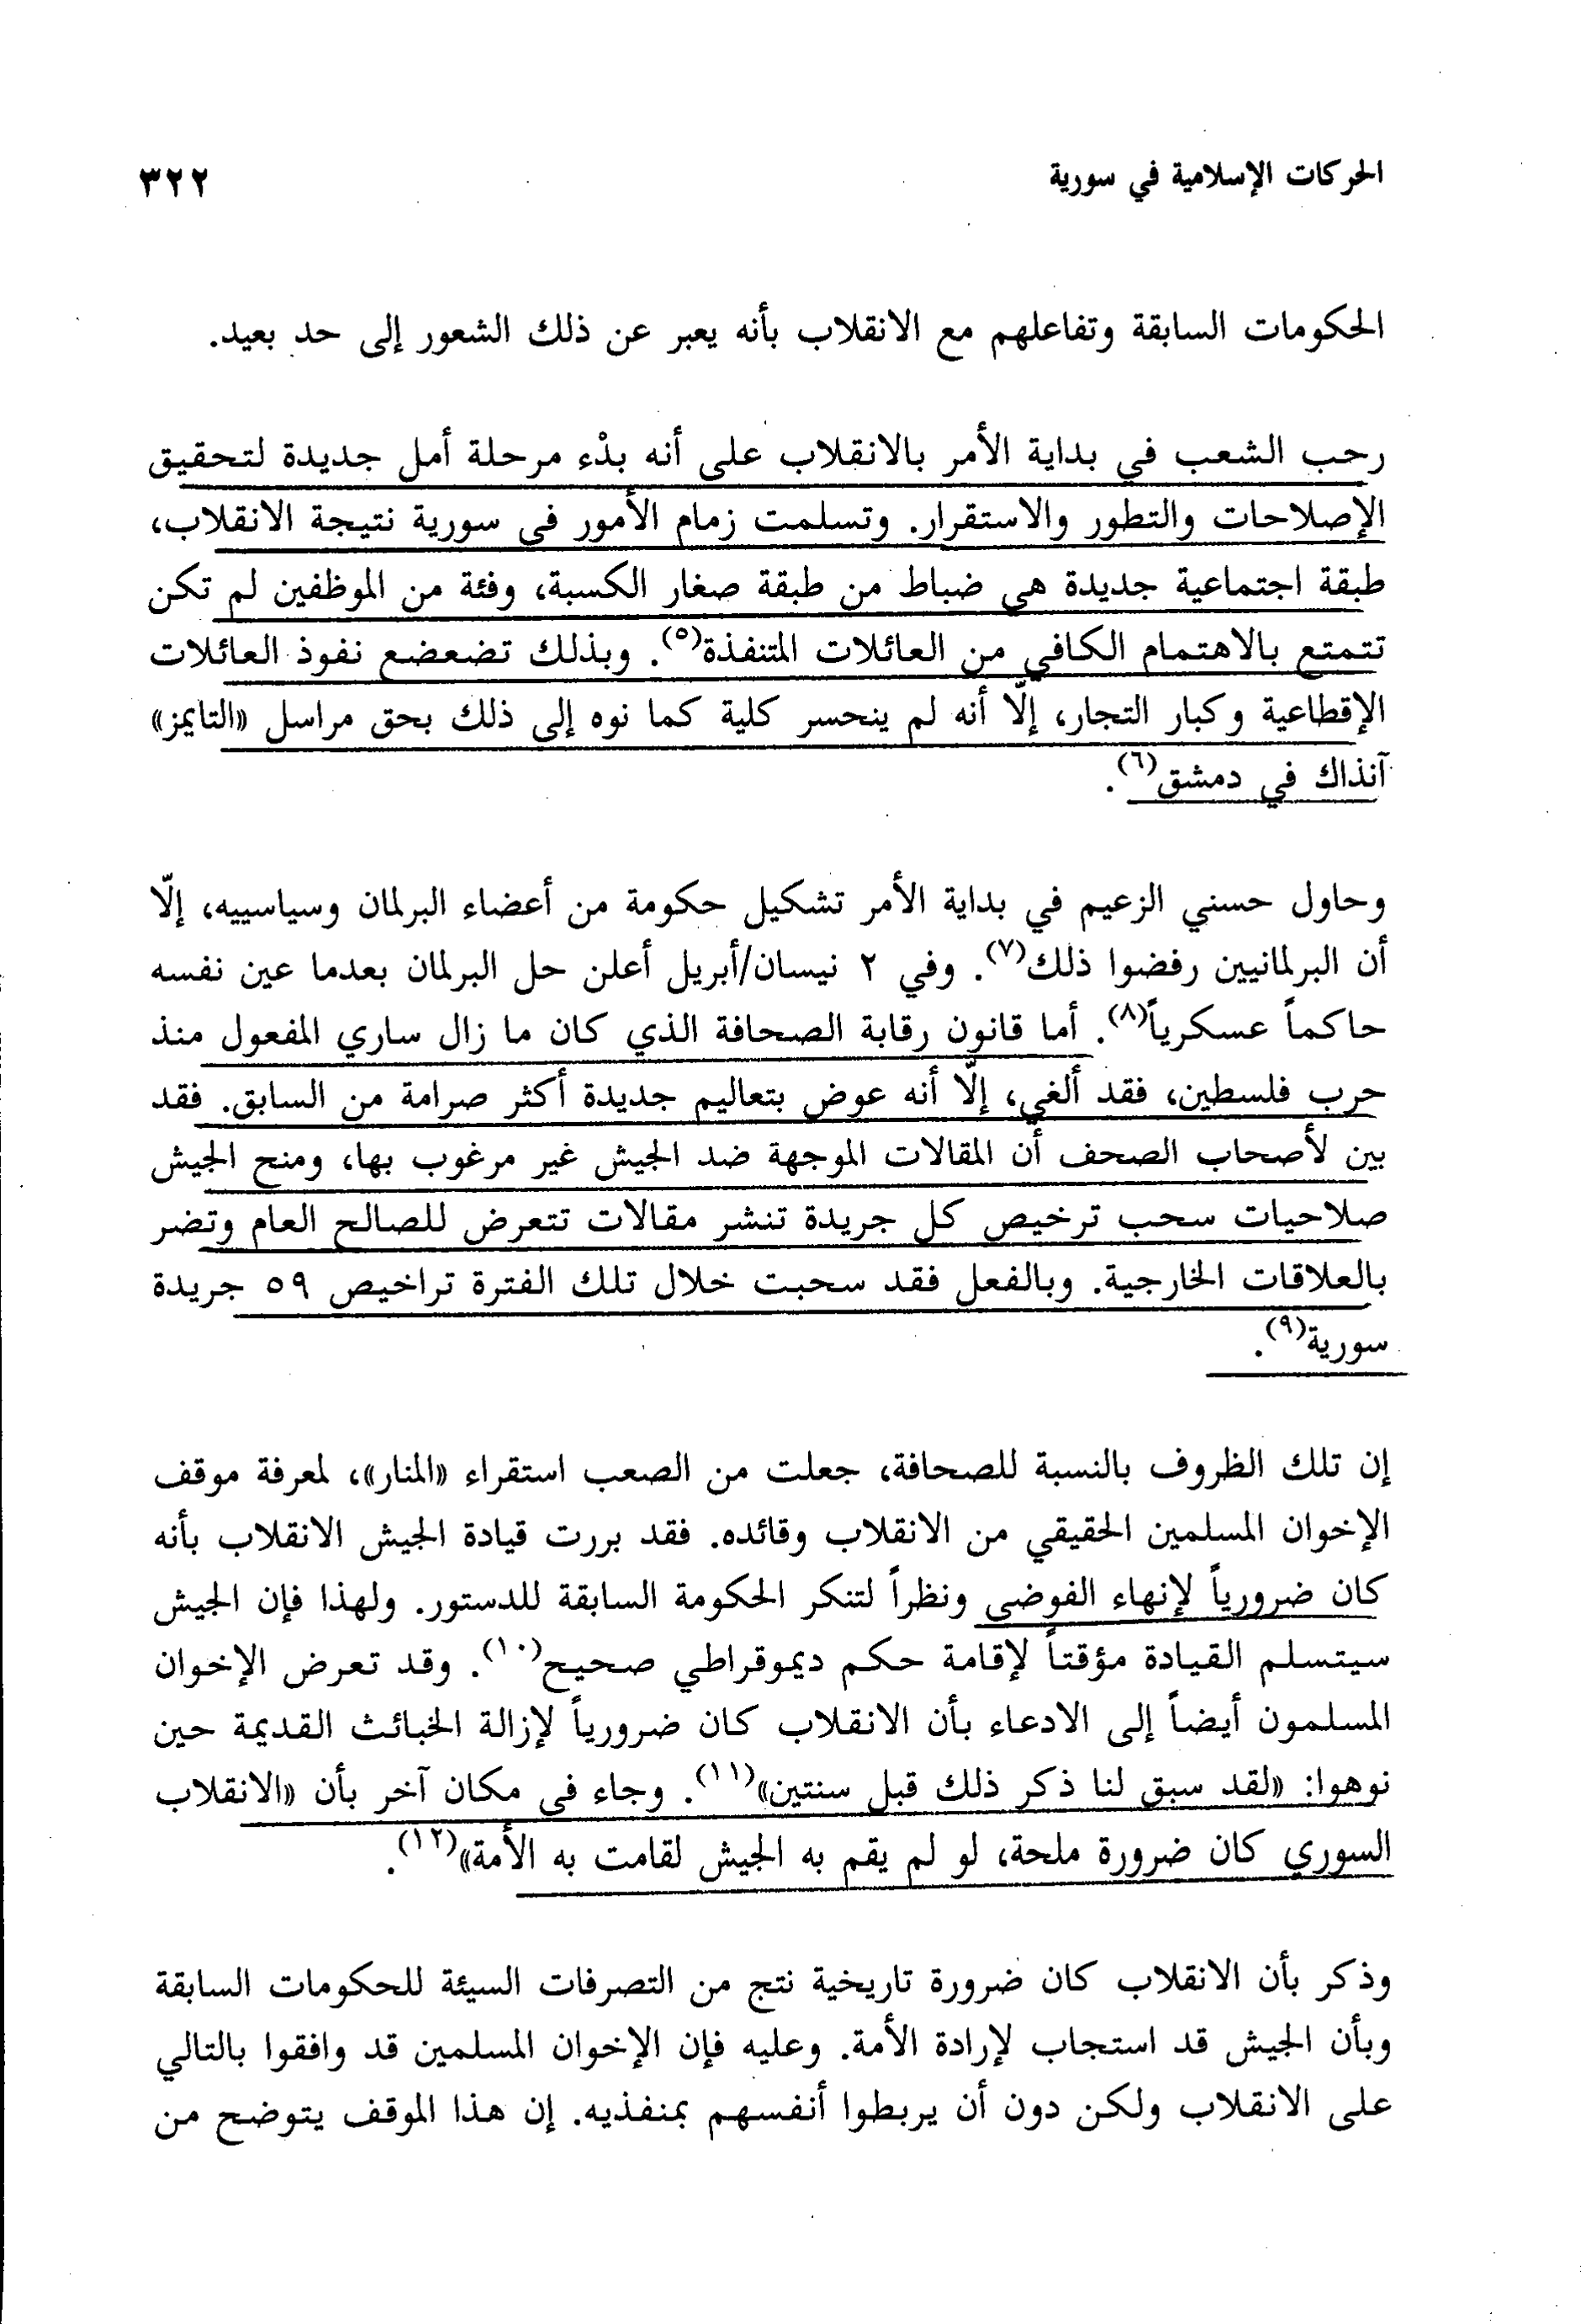 الحركات الإسلامية في سورية ٣٢٢
الحكومات السابقة وتفاعلهم مع الانقلاب بأنه يعبر عن ذلك الشعور إلى حد بعيد.
رحب الشعب في بداية الأمر بالانقلاب على أنه بدْء مرحلة أمل جديدة لتحقيق
الإصلاحات والتطور والاستقرار. وتسلمت زمام الأمور في سورية نتيجة الانقلاب،
طبقة اجتماعية جديدة هي ضباط من طبقة صغار الكسبة، وفئة من الموظفين لم تكن
تتمتع بالاهتمام الكافي من العائلات المتنفذة(٥). وبذلك تضعضع نفوذ العائلات
الإقطاعية وكبار التجار، إلّا أنه لم ينحسر كلية كما نوه إلى ذلك بحق مراسل «التايمز»
آنذاك في دمشق(٦).
وحاول حسني الزعيم في بداية الأمر تشكيل حكومة من أعضاء البرلمان وسياسييه، إلّا
أن البرلمانيين رفضوا ذلك(٧). وفي ٢ نيسان/أبريل أعلن حل البرلمان بعدما عين نفسه
حاكماً عسكرياً(٨). أما قانون رقابة الصحافة الذي كان ما زال ساري المفعول منذ
حرب فلسطين، فقد ألغي، إلّا أنه عوض بتعاليم جديدة أكثر صرامة من السابق. فقد
بين لأصحاب الصحف أن المقالات الموجهة ضد الجيش غير مرغوب بها، ومنح الجيش
صلاحيات سحب ترخيص كل جريدة تنشر مقالات تتعرض للصالح العام وتضر
بالعلاقات الخارجية. وبالفعل فقد سحبت خلال تلك الفترة تراخيص ٥٩ جريدة
سورية(٩).
إن تلك الظروف بالنسبة للصحافة، جعلت من الصعب استقراء «المنار»، لمعرفة موقف
الإخوان المسلمين الحقيقي من الانقلاب وقائده. فقد بررت قيادة الجيش الانقلاب بأنه
كان ضرورياً لإنهاء الفوضى ونظراً لتنكر الحكومة السابقة للدستور. ولهذا فإن الجيش
سيتسلم القيادة مؤقتاً لإقامة حكم ديموقراطي صحيح(١٠). وقد تعرض الإخوان
المسلمون أيضاً إلى الادعاء بأن الانقلاب كان ضرورياً لإزالة الخبائث القديمة حين
نوهوا: «لقد سبق لنا ذكر ذلك قبل سنتين»(١١). وجاء في مكان آخر بأن «الانقلاب
السوري كان ضرورة ملحة، لو لم يقم به الجيش لقامت به الأمة»(١٢).
وذكر بأن الانقلاب كان ضرورة تاريخية نتج من التصرفات السيئة للحكومات السابقة
وبأن الجيش قد استجاب لإرادة الأمة. وعليه فإن الإخوان المسلمين قد وافقوا بالتالي
على الانقلاب ولكن دون أن يربطوا أنفسهم بمنفذيه. إن هذا الموقف يتوضح من